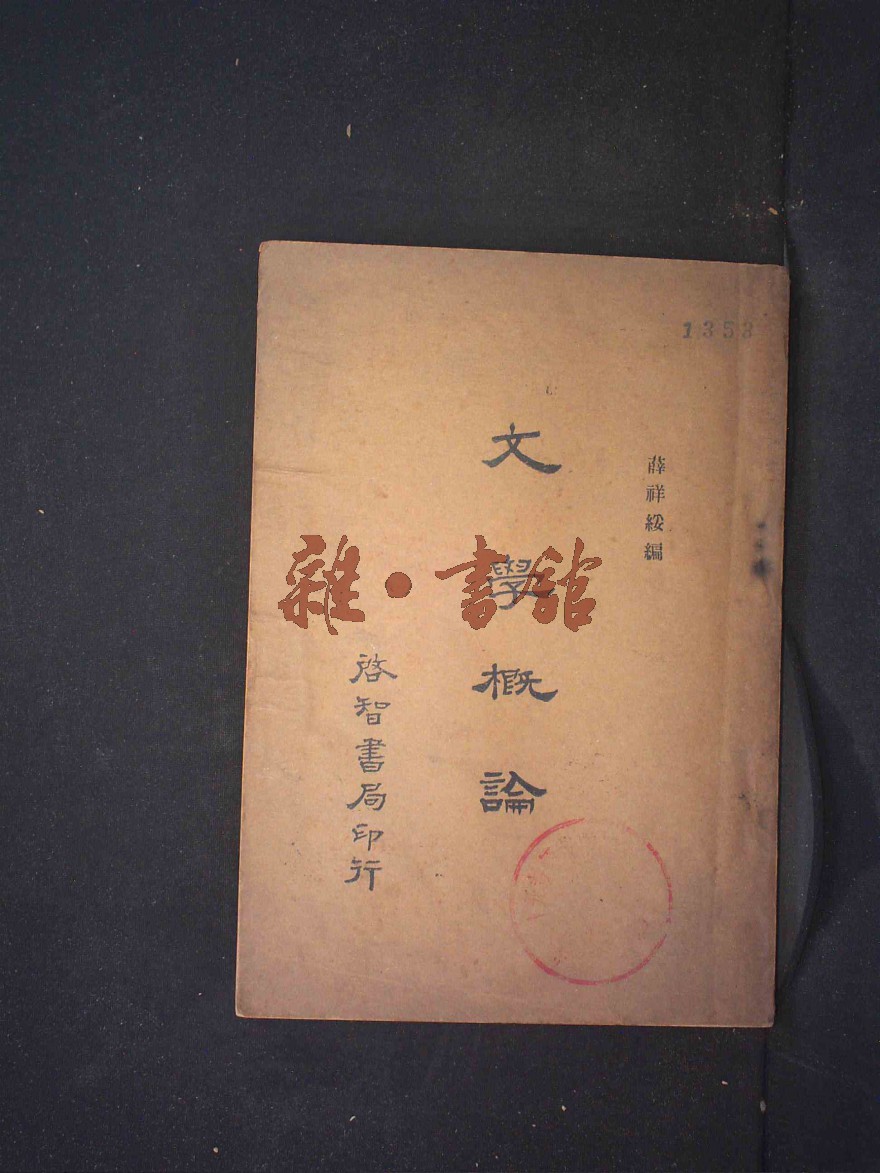 1353
薛祥綏編
文學概論
啓智書局印行
雜·書館